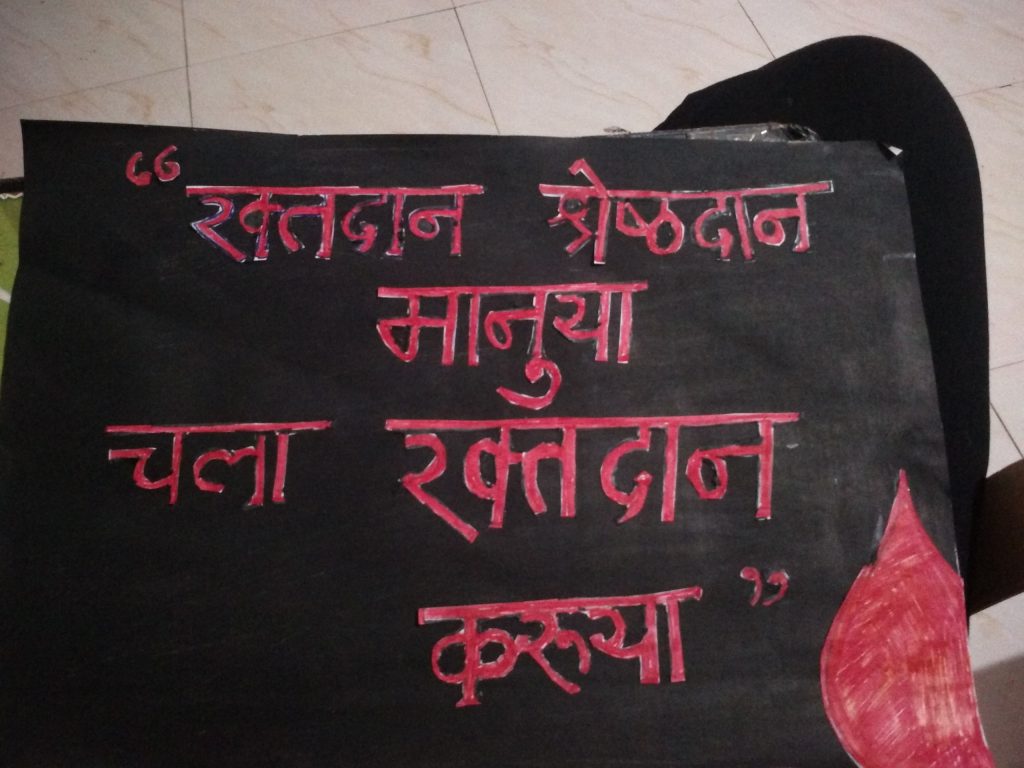 “रक्तदान श्रेष्ठदान
मानुया
चला रक्तदान
करूया”